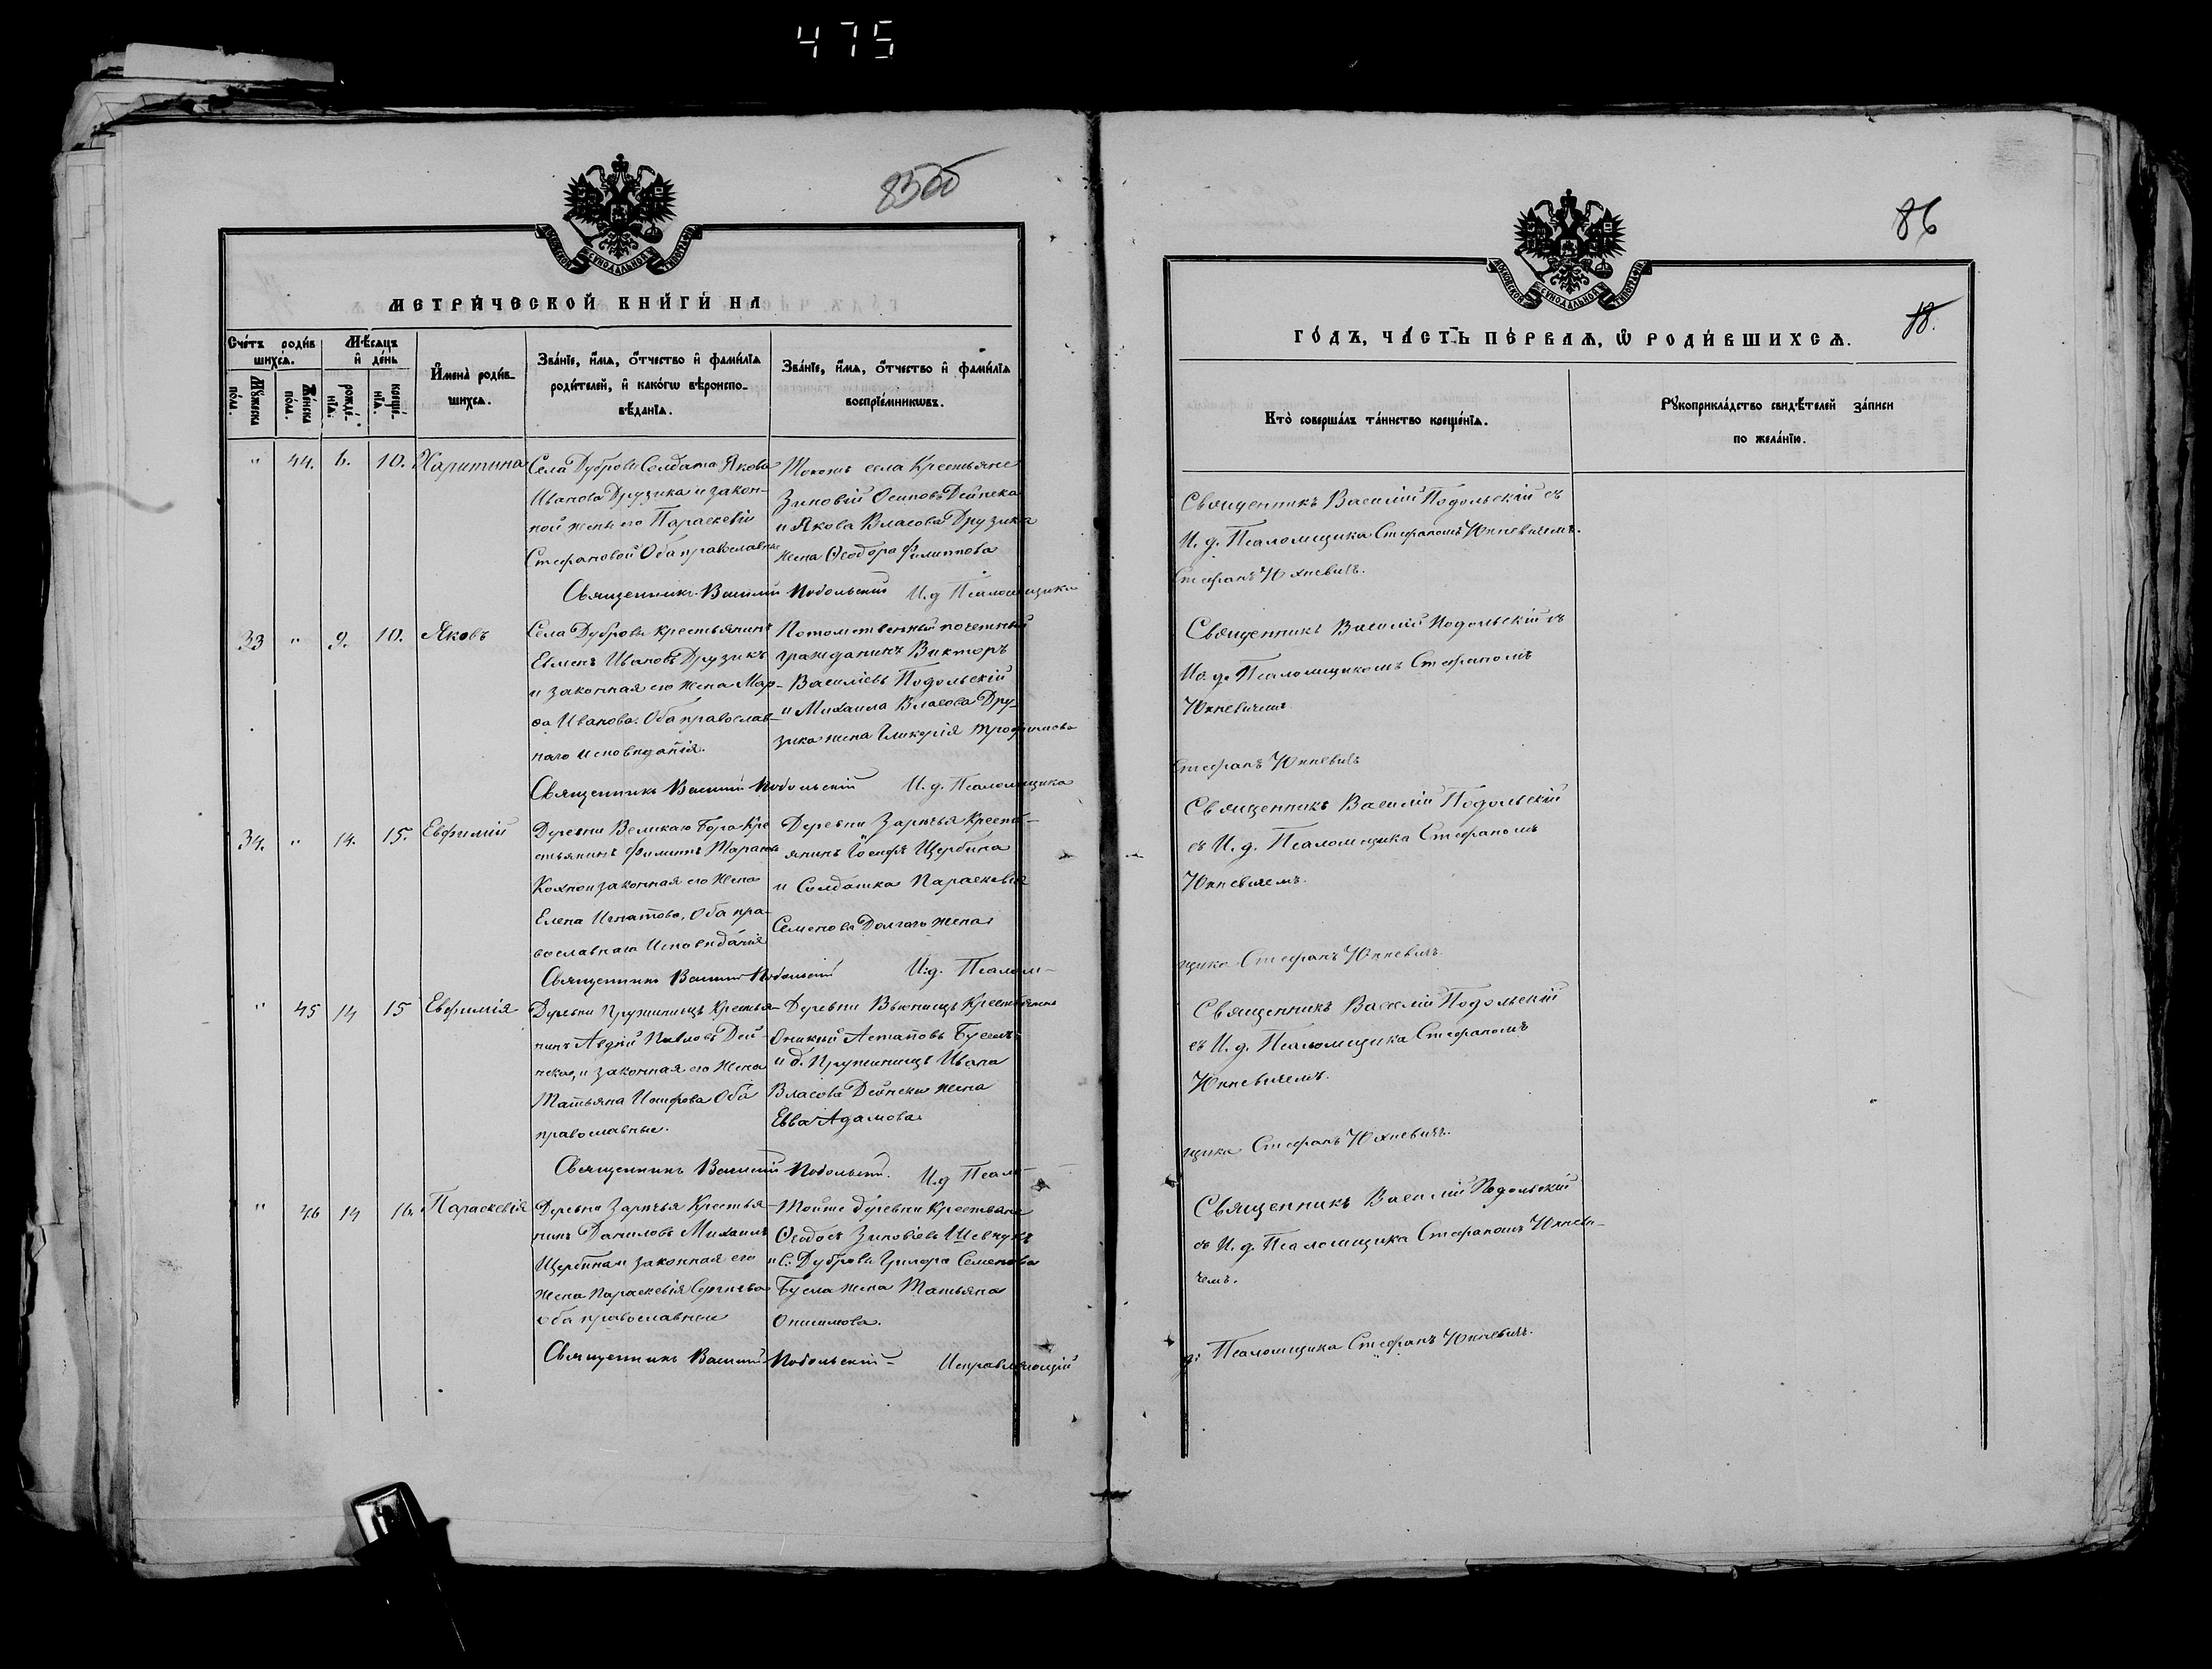 475
85об
МОСКОВСКОЙ СѴНОДАЛЬНОЙ ТИПОГРАФІИ
МЕТРИ́ЧЕСКОЙ КНИ́ГИ НА
Сче́тъ роди́в
шихся.
Мꙋжеска
по́ла.
Же́нска
по́ла.
Мѣ́сяцъ
и҆ де́нь
рожде́
нїѧ.
креще́
нїѧ.
И҆мена̀ роди́в_
шихсѧ.
Зва́нїе, и҆́мѧ, ѻ҆́тчество и҆ фамѝлїѧ
роди́телей, и҆ како́гѡ вѣроиспо_
вѣ́данїѧ.
Зва́нїе, и҆́мѧ, ѻ҆́тчество и҆ фами́лїѧ
воспрїе́мникѡвъ.
" 44. 6. 10. Харитина
Села Дубровы Солдата Якова
Иванова Друзика и закон-
ной жены его Параскевіи
Стефановой Оба православные
Тогожъ села Крестьяне
Зиновій Осиповъ Дейнека
и Якова Власова Друзика
жена Ѳеодора Филиппова
Священникъ Василій Подольскій И.д Псаломщика
33 " 9. 10. Яковъ
Села Дубровы крестьянинъ
Евменъ Ивановъ Друзикъ
и законная его жена Мар-
ѳа Иванова. Оба православ-
наго Исповѣданія.
Потомственный почетный
гражданинъ Викторъ
Василіевъ Подольскій
и Михаила Власова Дру-
зика жена Гликерія Трофимова
Священникъ Василій Подольскій И.д. Псаломщика
34. " 14. 15. Евфимій
Деревни Великаго Бора Кре
стьянинъ Филиппъ Тарасовъ
и законная его жена
Елена Игнатова, Оба пра-
вославнаго Исповѣданія
Деревни Зарѣчья Кресть-
янинъ Іосифъ Щербина
и Солдатка Параскевія
Семенова Долгаго жена
Священникъ Василій Подольскій И.д. Псалом-
" 45 14 15 Евфимія
Деревни Пружинищъ Крестья-
нинъ Авдій Павловъ Дей-
нека, и законная его жена
Татьяна Іосифова Оба
православные.
Деревни Вьюнищъ Крестьянинъ
Оникій Астаповъ Буселъ
и д. Пружинищъ Ивана
Власова Дейнеки жена
Евва Адамова
Священникъ Василій Подольскій. И.д Псал-
" 46 14 16. Параскевія
Деревни Зарѣчья Крестья-
нинъ Даниловъ Михаилъ
Щербина и законная его
жена Параскевія Сергѣева
оба православные
Тойже деревни Крестьяне
Ѳеодосъ Зиновіевъ Шевчукъ
и С. Дубровы Григора Семенова
Бусла жена Татьяна
Онисимова.
Священникъ Василій Подольскій- Исправляющій
86
18.
МОСКОВСКОЙ СѴНОДАЛЬНОЙ ТИПОГРАФІИ
ГО́ДЪ, ЧА́СТЬ ПЕ́РВАѦ, Ѡ҆ РОДИ́ВШИХСѦ.
Кто̀ соверша́лъ та́инство креще́нїѧ.
Рꙋкоприкла́дство свидѣ́телей за́писи
по жела́нїю.
Священникъ Василій Подольскій съ
И. д. Псаломщика Стефаномъ Юхневичемъ.
Стефанъ Юхневичъ.
Священникъ Василій Подольскій съ
Ис. д. Псаломщикомъ Стефаномъ
Юхневичемъ
Стефанъ Юхневичъ
Священникъ Василій Подольскій
съ И. д. Псаломщика Стефаномъ
Юхневичемъ.
щика Стефанъ Юхневичъ.
Священникъ Василій Подольскій
съ И. д. Псаломщика Стефаномъ
Юхневичемъ.
щика Стефанъ Юхневичъ.
Священникъ Василій Подольскій
съ И. д. Псаломщика Стефаномъ Юхневи-
чемъ.
д: Псаломщика Стефанъ Юхневичъ.